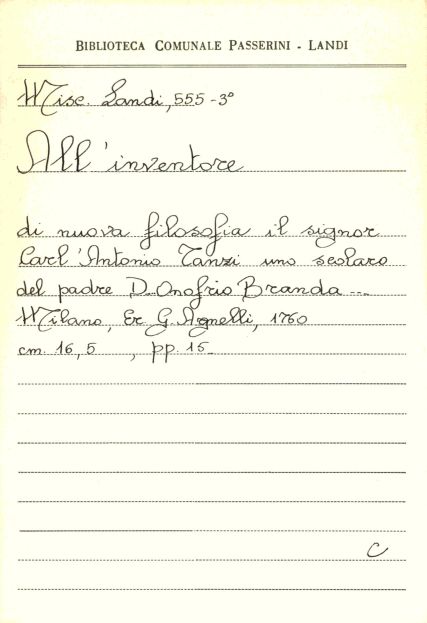 BIBLIOTECA COMUNALE PASSERINI - LANDI
Misc. Landi, 555-3°
All'inventore
di nuova filosofia il signor
Carl'Antonio Tanzi uno scolaro
del padre D. Onofrio Branda ...
Milano, Er. G. Agnelli, 1760
cm. 16,5 , pp. 15
C